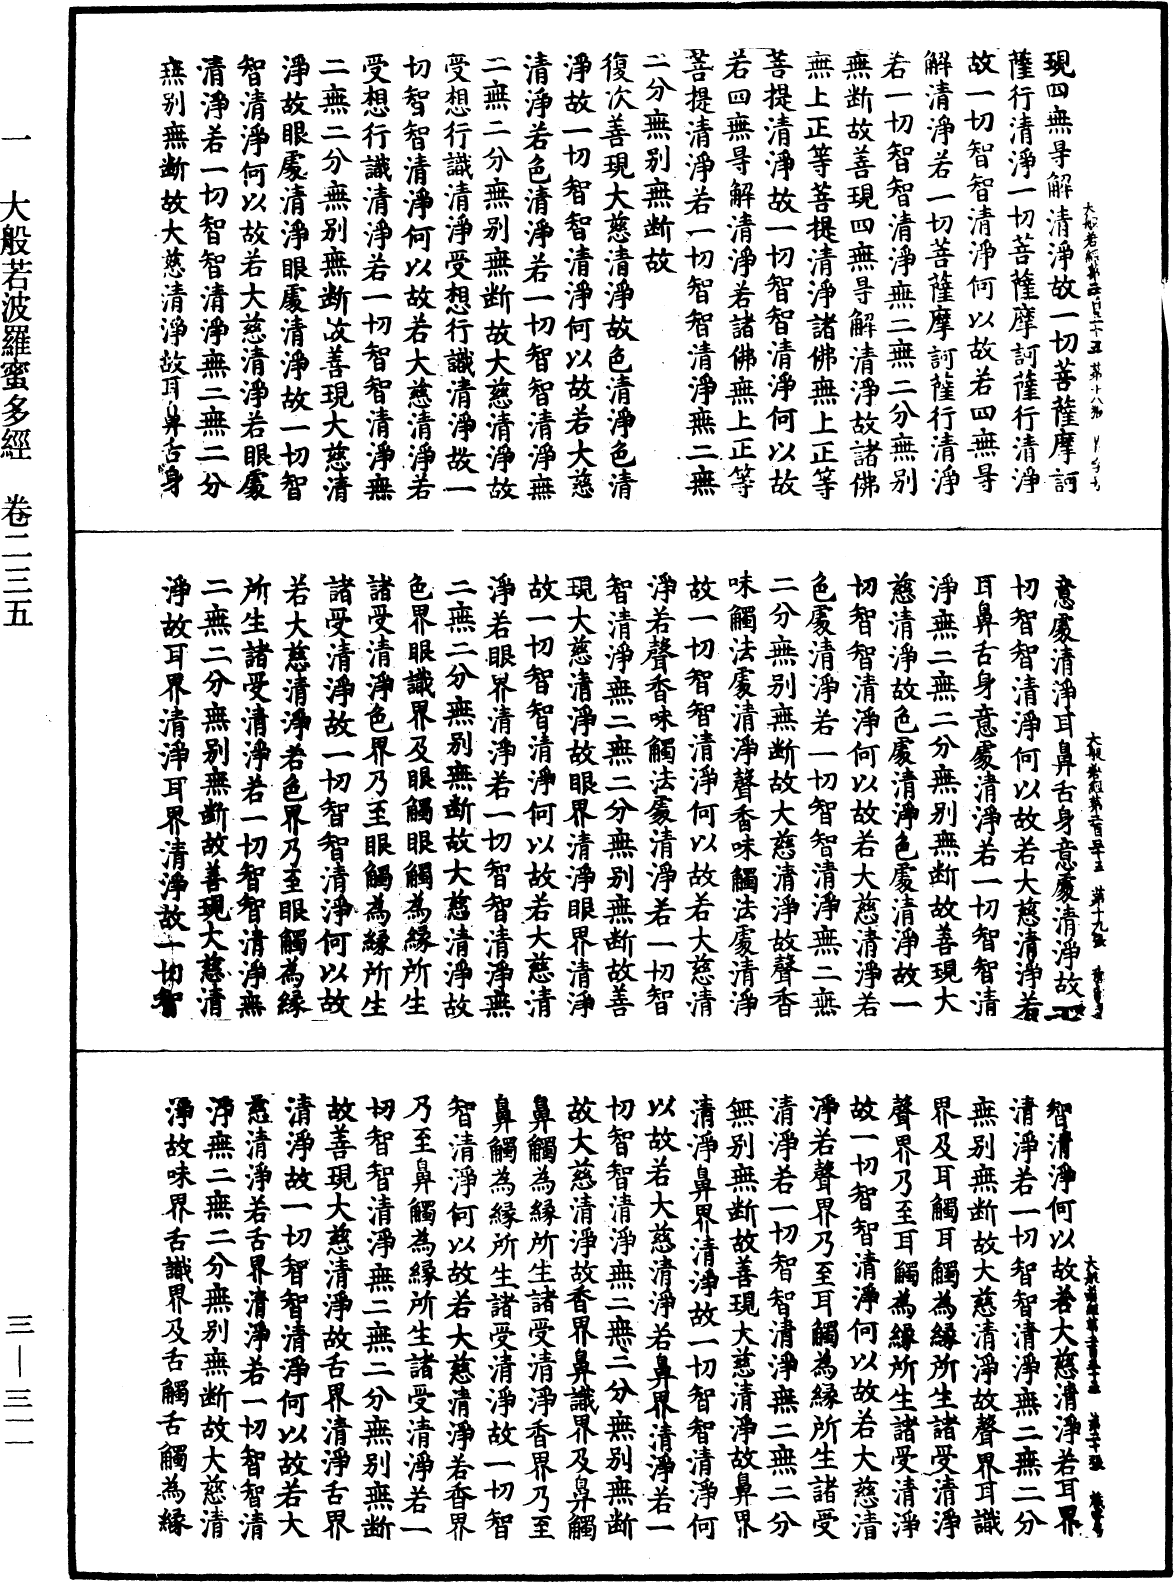 現四無㝵解清淨故一切菩薩摩訶
薩行清淨一切菩薩摩訶薩行清淨
故一切智智清淨何以故若四無㝵
解清淨若一切菩薩摩訶薩行清淨
若一切智智清淨無二無二分無別
無断故善現四無㝵解清淨故諸佛
無上正等菩提清淨諸佛無上正等
菩提清淨故一切智智清淨何以故
若四無㝵解清淨若諸佛無上正等
菩提清淨若一切智智清淨無二無
二分無别無断故
復次善現大慈清淨故色清淨色清
淨故一切智智清淨何以故若大慈
清淨若色清淨若一切智智清淨無
二無二分無别無断故大慈清淨故
受想行識清淨受想行識清淨故一
切智智清淨何以故若大慈清淨若
受想行識清淨若一切智智清淨無
二無二分無别無断故善現大慈清
淨故眼處清淨眼處清淨故一切智
智清淨何以故若大慈清淨若眼處
清淨若一切智智清淨無二無二分
無别無断故大慈清淨故耳鼻舌身
意處清淨耳鼻舌身意處清淨故一
切智智清淨何以故若大慈清淨若
耳鼻舌身意處清淨若一切智智清
淨無二無二分無别無断故善現大
慈清淨故色處清淨色處清淨故一
切智智清淨何以故若大慈清淨若
色處清淨若一切智智清淨無二無
二分無别無断故大慈清淨故聲香
味觸法處清淨聲香味觸法處清淨
故一切智智清淨何以故若大慈清
淨若聲香味觸法處清淨若一切智
智清淨無二無二分無别無断故善
現大慈清淨故眼界清淨眼界清淨
故一切智智清淨何以故若大慈清
淨若眼界清淨若一切智智清淨無
二無二分無别無断故大慈清淨故
色界眼識界及眼觸眼觸為緣所生
諸受清淨色界乃至眼觸為緣所生
諸受清淨故一切智智清淨何以故
若大慈清淨若色界乃至眼觸為緣
所生諸受清淨若一切智智清淨無
二無二分無别無断故善現大慈清
淨故耳界清淨耳界清淨故一切智
智清淨何以故若大慈清淨若耳界
清淨若一切智智清淨無二無二分
無别無断故大慈清淨故聲界耳識
界及耳觸耳觸為緣所生諸受清淨
聲界乃至耳觸為緣所生諸受清淨
故一切智智清淨何以故若大慈清
淨若聲界乃至耳觸為緣所生諸受
清淨若一切智智清淨無二無二分
無别無断故善現大慈清淨故鼻界
清淨鼻界清淨故一切智智清淨何
以故若大慈清淨若鼻界清淨若一
切智智清淨無二無二分無别無断
故大慈清淨故香界鼻識界及鼻觸
鼻觸為緣所生諸受清淨香界乃至
鼻觸為緣所生諸受清淨故一切智
智清淨何以故若大慈清淨若香界
乃至鼻觸為緣所生諸受清淨若一
切智智清淨無二無二分無别無断
故善現大慈清淨故舌界清淨舌界
清淨故一切智智清淨何以故若大
慈清淨若舌界清淨若一切智智清
淨無二無二分無别無断故大慈清
淨故味界舌識界及舌觸舌觸為緣
一 大般若波羅蜜多經 卷二三五
三—三一一